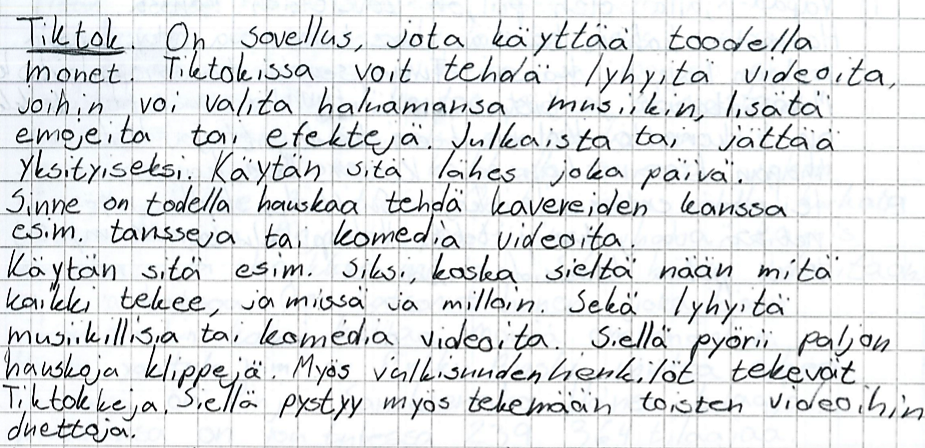 Tiktok. On sovellus, jota käyttää toodella
monet. Tiktokissa voit tehdä lyhyitä videoita,
joihin voi valita haluamansa musiikin, lisätä
emojeita tai efektejä. Julkaista tai jättää
yksityiseksi. Käytän sitä lähes joka päivä.
Sinne on todella hauskaa tehdä kavereiden kanssa
esim. tansseja tai komedia videoita.
Käytän sitä esim. siksi, koska sieltä nään mitä
kaikki tekee, ja missä ja milloin. Sekä lyhyitä
musiikillisia tai komedia videoita. Siellä pyörii paljon
hauskoja klippejä. Myös julkisuudenhenkilöt tekevät
Tiktokkeja. Siellä pystyy myös tekemään toisten videoihin
duettoja.